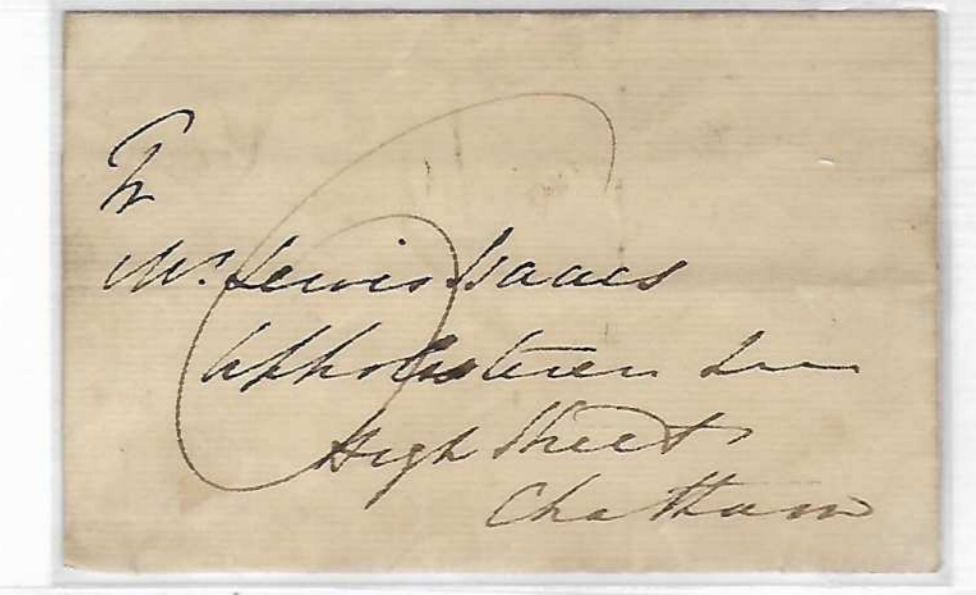 To
Mr. Lewis Isaacs
Upholsterer
High Street
Chattham